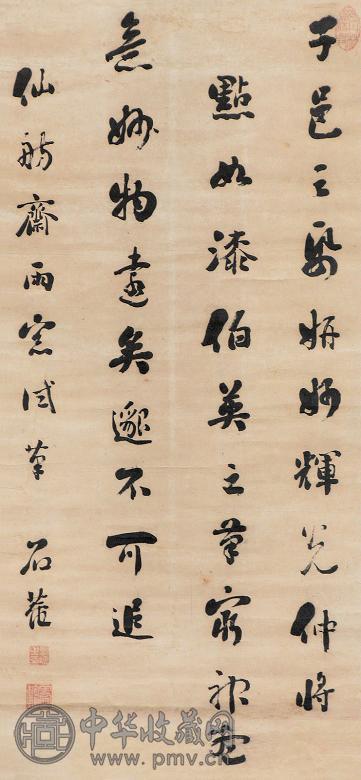 子邑之紙妍妙輝光仲將
點如漆伯英之筆窮神盡
意妙物遠矣邈不可追
仙舫齋雨窓試筆 石菴
中华收藏网
www.pmv.cn